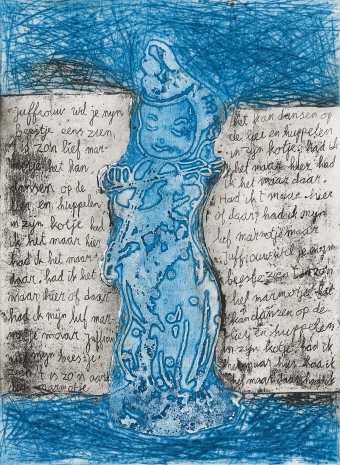 Juffrouw wil je mijn
beestje eens zien,
't is zo'n lief mar-
motje het kan
dansen op de
lier en huppelen
in zijn kotje had
ik het maar hier
had ik het maar
daar. had ik het
maar hier of daar
had ik mijn lief mar-
motje maar. Juffrouw
mijn beestje
zien 't is zo'n
marmotje
het kan dansen op
de lier en huppelen
in zijn kotje, had ik
het maar hier had
ik het maar daar.
Had ik 't maar hier
of daar, had ik mijn
lief marmotje maar
Juffrouw wil je mijn
beestje zien 't is zo'n
lief marmotje het
kan dansen op de
lier en huppelen
in zijn kotje, had ik
het maar hier had ik
het maar daar had ik